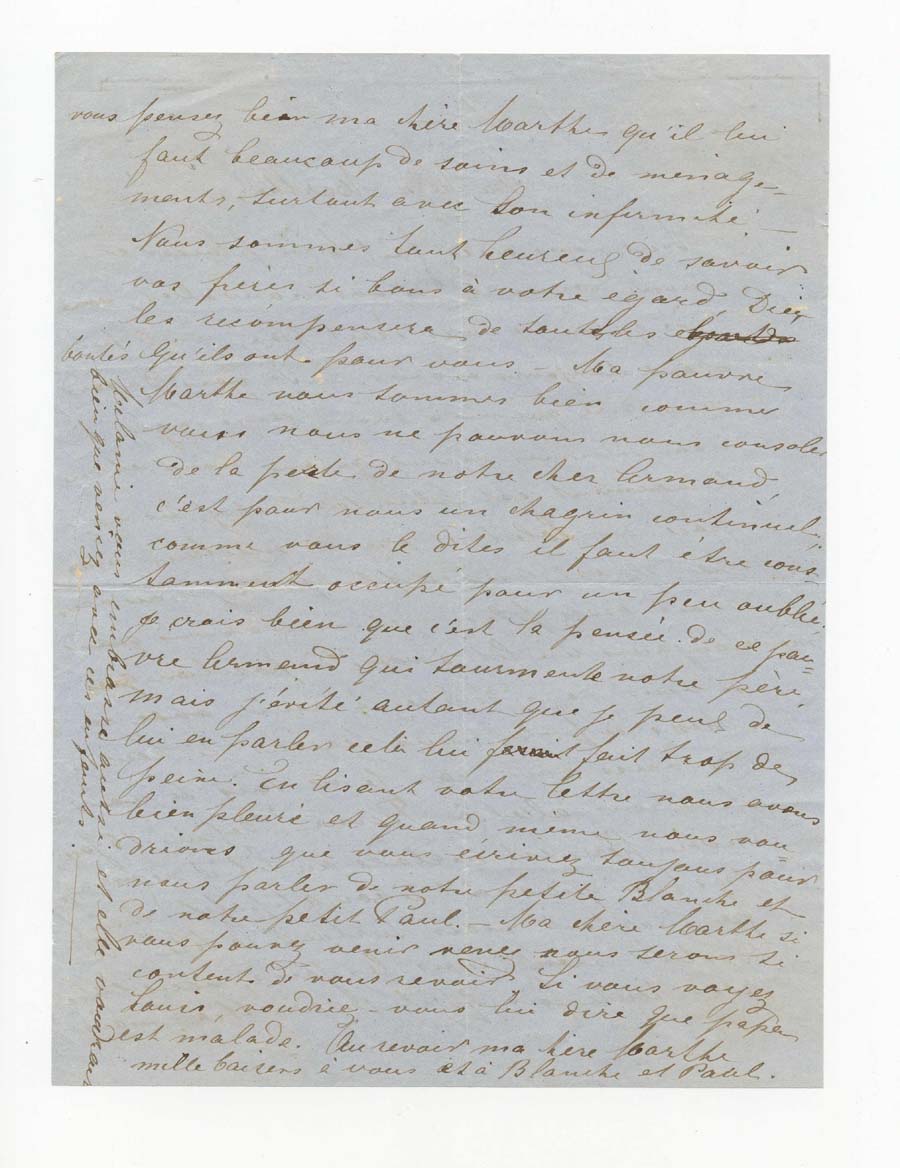 vous pensez bien ma chère Marthe qu'il lui
faut beaucoup de soins et de ménage-
ments, surtout avec son infirmité –
Nous sommes tant heureux de savoir
vos frères si bons à votre égard, Dieu
les recompensera de toutes les
bontés qu'ils ont pour vous – Ma pauvre
Marthe nous sommes bien comme
vous nous ne pouvons nous consoler
de la perte de notre cher Armand,
c'est pour nous un chagrin continuel,
comme vous le dites il faut être cons-
tamment occupé pour un peu oublié,
je crois bien que c'est la pensée de ce pau=
vre Armand qui tourmente notre père,
mais j'évité autant que je peux de
lui en parler celà lui fait trop de
peine. En lisant votre lettre nous avons
bien pleuré et quand même nous vou=
drions que vous écriviez toujous pour
nous parler de notre petite Blanche et
de notre petit Paul. – Ma chère Marthe si
vous pouvez venir venez nous serons si
content de vous revoir, si vous voyez
Louis, voudriez-vous lui dire que papa
est malade. Au revoir ma hère Marthe
mille baisers à vous et à Blanche et Paul.
vous embrasse aussi et elle voudrais
bien que vous avec ces enfants.